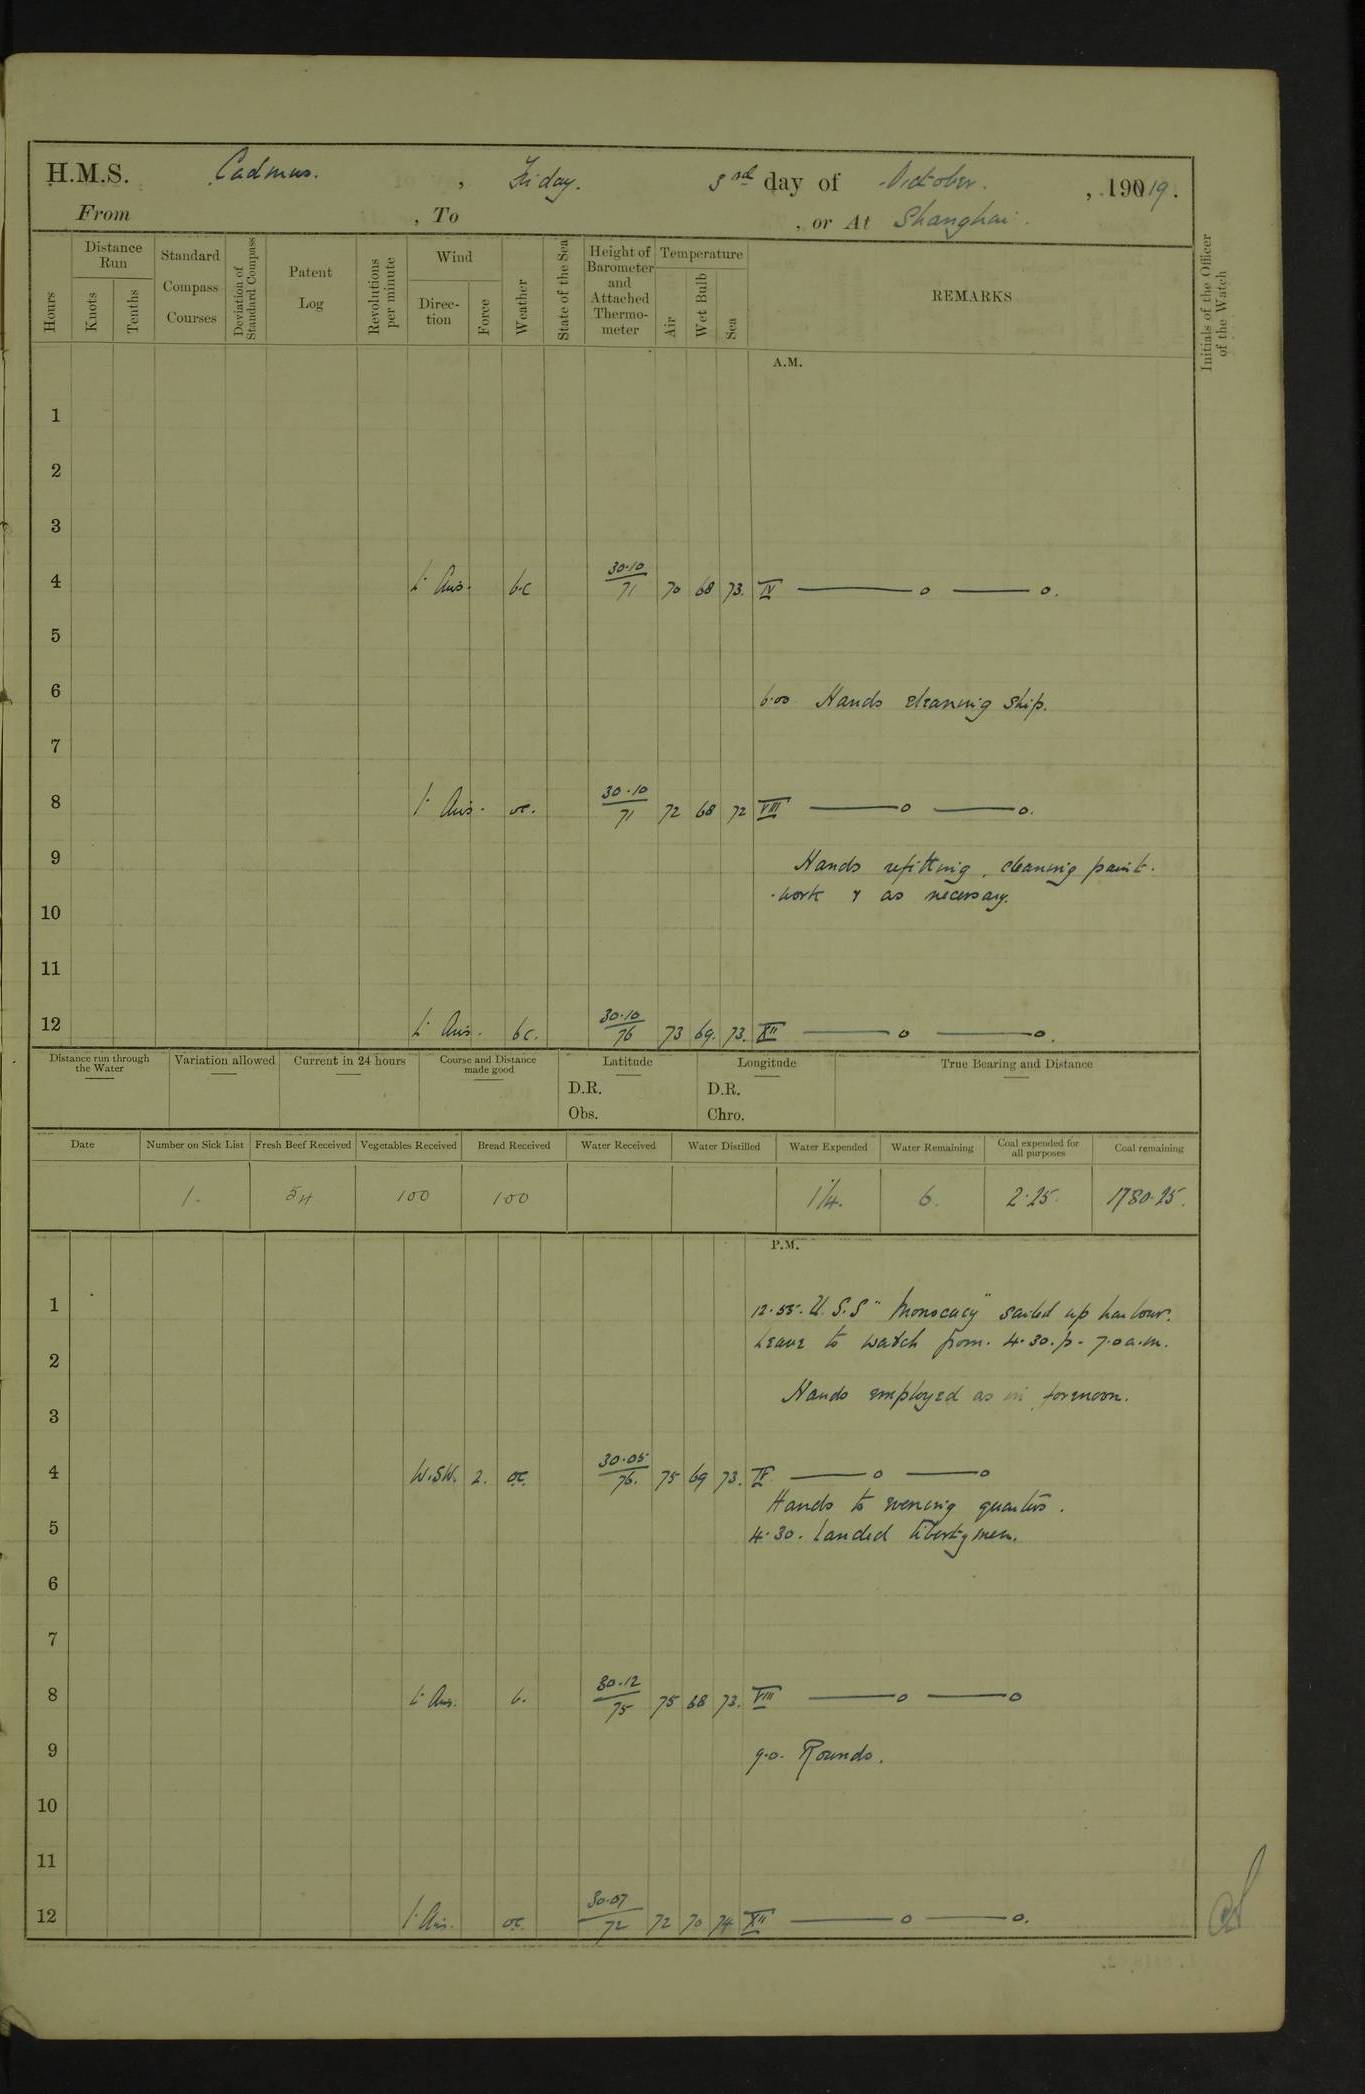 H.M.S. Cadmus. , Friday. 3rd day of October. , 19019.
From , To , or At Shanghai.
Hours
Distance Run
Knots
Tenths
Standard Compass Courses
Deviation of Standard Compass
Patent Log
Revolutions per minute
Wind
Direc-tion
Force
Weather
State of the Sea
Height of Barometer and Attached Thermo-meter
Temperature
Air
Wet Bulb
Sea
REMARKS
Initials of the Officer of the Watch
A.M.
1
2
3
4 Lt Airs. b.c 30.10/71 70 68 73. IV
5
6 6.00 Hands cleaning ship.
7
8 Lt Airs. oc. 30.10/71 72 68 72 VIII
9 Hands refitting, cleaning paint-
-work & as necessary.
10
11
12 Lt Airs. bc. 30.10/76 73 69. 73. XII
Distance run through the Water
Variation allowed
Current in 24 hours
Course and Distance made good
Latitude
D.R.
Obs.
Longitude
D.R.
Chro.
True Bearing and Distance
Date Number on Sick List Fresh Beef Received Vegetables Received Bread Received Water Received Water Distilled Water Expended Water Remaining Coal expended for all purposes Coal remaining
1. 54 100 100 1¼. 6. 2.25. 1780.25.
P.M.
1 12.55. U.S.S "Monocacy" sailed up harbour.
Leave to watch from. 4.30.p - 7.0 a.m.
2
Hands employed as in forenoon.
3
4 W.SW. 2. oc. 30.05/76. 75 69 73. IV
Hands to evening quarters.
5 4.30. Landed libertymen.
6
7
8 Lt Airs. b. 30.12/75 75 68 73. VIII
9 9.0. Rounds.
10
11
12 Lt Airs. oc. 30.07/72 72 70 74 XII